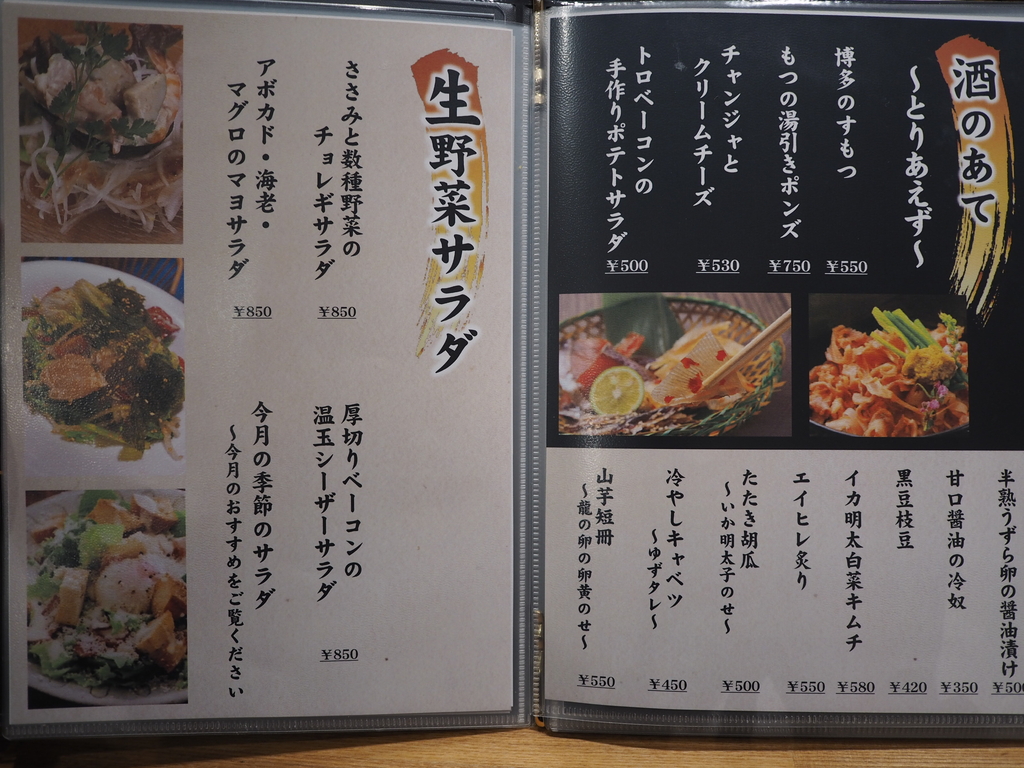 酒のあて
〜とりあえず〜
博多のすもつ
¥550
もつの湯引きポンズ
¥750
チャンジャと
クリームチーズ
¥530
トロベーコンの
手作りポテトサラダ
¥500
半熟うずら卵の醤油漬け
¥500
甘口醤油の冷奴
¥350
黒豆枝豆
¥420
イカ明太白菜キムチ
¥580
エイヒレ炙り
¥550
たたき胡瓜
〜いか明太子のせ〜
¥500
冷やしキャベツ
〜ゆずタレ〜
¥450
山芋短冊
〜龍の卵の卵黄のせ〜
¥550
生野菜サラダ
ささみと数種野菜の
チョレギサラダ
¥850
アボカド・海老・
マグロのマヨサラダ
¥850
厚切りベーコンの
温玉シーザーサラダ
¥850
今月の季節のサラダ
〜今月のおすすめをご覧ください